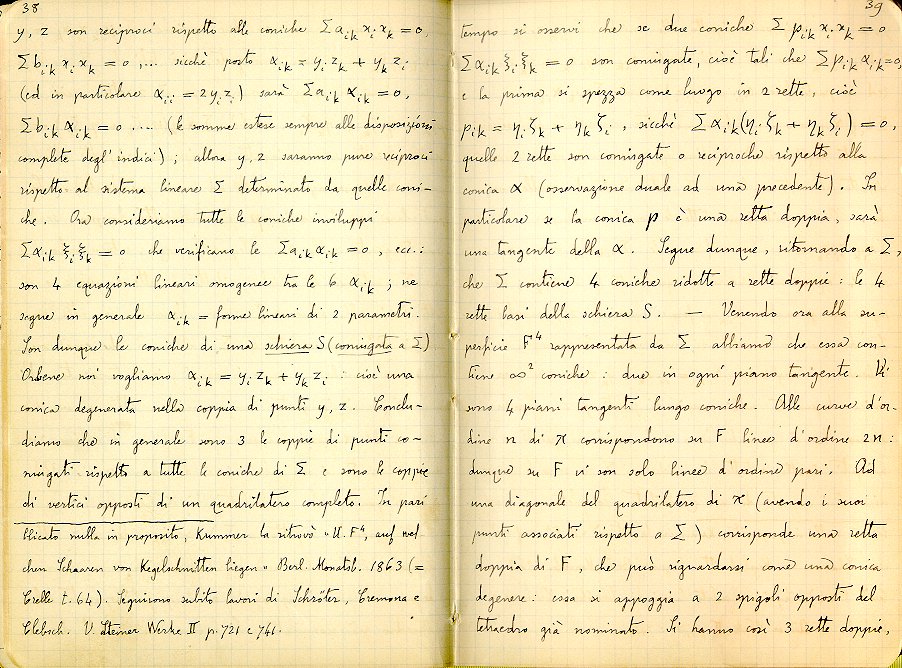 38
y, z son reciproci rispetto alle coniche Σ a_{ik} x_i x_k = 0,
Σ b_{ik} x_i x_k = 0, ... sicchè posto α_{ik} = y_i z_k + y_k z_i
(ed in particolare α_{ii} = 2 y_i z_i) sarà Σ a_{ik} α_{ik} = 0,
Σ b_{ik} α_{ik} = 0 .... (le somme estese sempre alle disposizioni
complete degl' indici); allora y, z saranno pure reciproci
rispetto al sistema lineare Σ determinato da quelle coni-
che. Ora consideriamo tutte le coniche inviluppi
Σ α_{ik} ξ_i ξ_k = 0 che verificano le Σ a_{ik} α_{ik} = 0, ecc.:
son 4 equazioni lineari omogenee tra le 6 α_{ik}; ne
segue in generale α_{ik} = forme lineari di 2 parametri.
Son dunque le coniche di una schiera S (coniugata a Σ)
Orbene noi vogliamo α_{ik} = y_i z_k + y_k z_i : cioè una
conica degenerata nella coppia di punti y, z. Conclu-
diamo che in generale sono 3 le coppie di punti co-
niugati rispetto a tutte le coniche di Σ e sono le coppie
di vertici opposti di un quadrilatero completo. In pari
blicato nulla in proposito, Kummer la ritrovò "U. F⁴, auf wel-
chen Schaaren von Kegelschnitten liegen" Berl. Monatsb. 1863 (=
Crelle t. 64). Seguirono subito lavori di Schröter, Cremona e
Clebsch. V. Steiner Werke II p. 721 e 741.
39
tempo si osservi che se due coniche Σ p_{ik} x_i x_k = 0
Σ α_{ik} ξ_i ξ_k = 0 son coniugate, cioè tali che Σ p_{ik} α_{ik} = 0,
e la prima si spezza come luogo in 2 rette, cioè
p_{ik} = η_i ζ_k + η_k ζ_i, sicchè Σ α_{ik} (η_i ζ_k + η_k ζ_i) = 0,
quelle 2 rette son coniugate o reciproche rispetto alla
conica α (osservazione duale ad una precedente). In
particolare se la conica p è una retta doppia, sarà
una tangente della α. Segue dunque, ritornando a Σ,
che Σ contiene 4 coniche ridotte a rette doppie: le 4
rette basi della schiera S. — Venendo ora alla su-
perficie F⁴ rappresentata da Σ abbiamo che essa con-
tiene ∞² coniche: due in ogni piano tangente. Vi
sono 4 piani tangenti lungo coniche. Alle curve d'or-
dine n di π corrispondono su F linee d'ordine 2n:
dunque su F vi son solo linee d'ordine pari. Ad
una diagonale del quadrilatero di π (avendo i suoi
punti associati rispetto a Σ) corrisponde una retta
doppia di F, che può riguardarsi come una conica
degenere: essa si appoggia a 2 spigoli opposti del
tetraedro già nominato. Si hanno così 3 rette doppie,